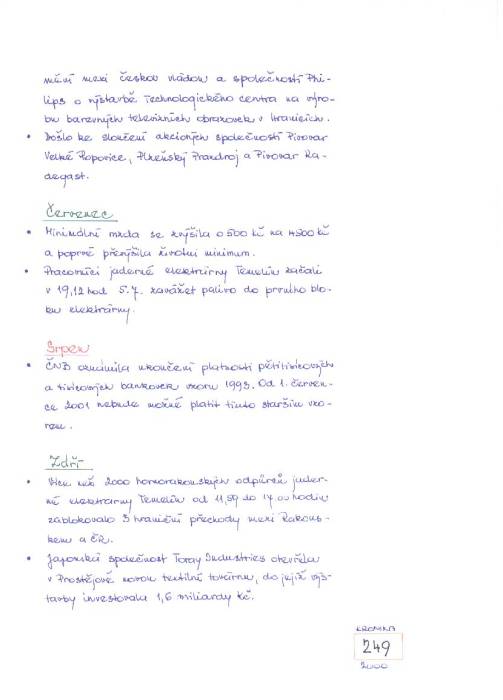 mění mezi českou vládou a společností Phi-
lips o výstavbě technologického centra na výro-
bu barevných televizních obrazovek v Hranicích.
• Došlo ke sloučení akciových společností Pivovar
Velké Popovice, Plzeňský Prazdroj a Pivovar Ra-
degast.
Červenec
• Minimální mzda se zvýšila o 500 kč na 4500 kč
a poprvé převýšila životní minimum.
• Pracovníci jaderné elektrárny Temelín začali
v 19,12 hod 5.7. zavážet palivo do prvního blo-
ku elektrárny.
Srpen
• ČNB oznámila ukončení platnosti pětitisícových
a tisícových bankovek vzoru 1993. Od 1. červen-
ce 2001 nebude možné platit tímto starším vzo-
rem.
Září
• Více než 2000 hornorakouských odpůrců jader-
né elektrárny Temelín od 11,59 do 17.00 hodin
zablokovalo 3 hraniční přechody mezi Rakous-
kem a ČR.
• Japonská společnost Toray Industries otevřela
v Prostějově novou textilní továrnu, do jejíž výs-
tavby investovala 1,6 miliardy kč.
KRONIKA
249
2000